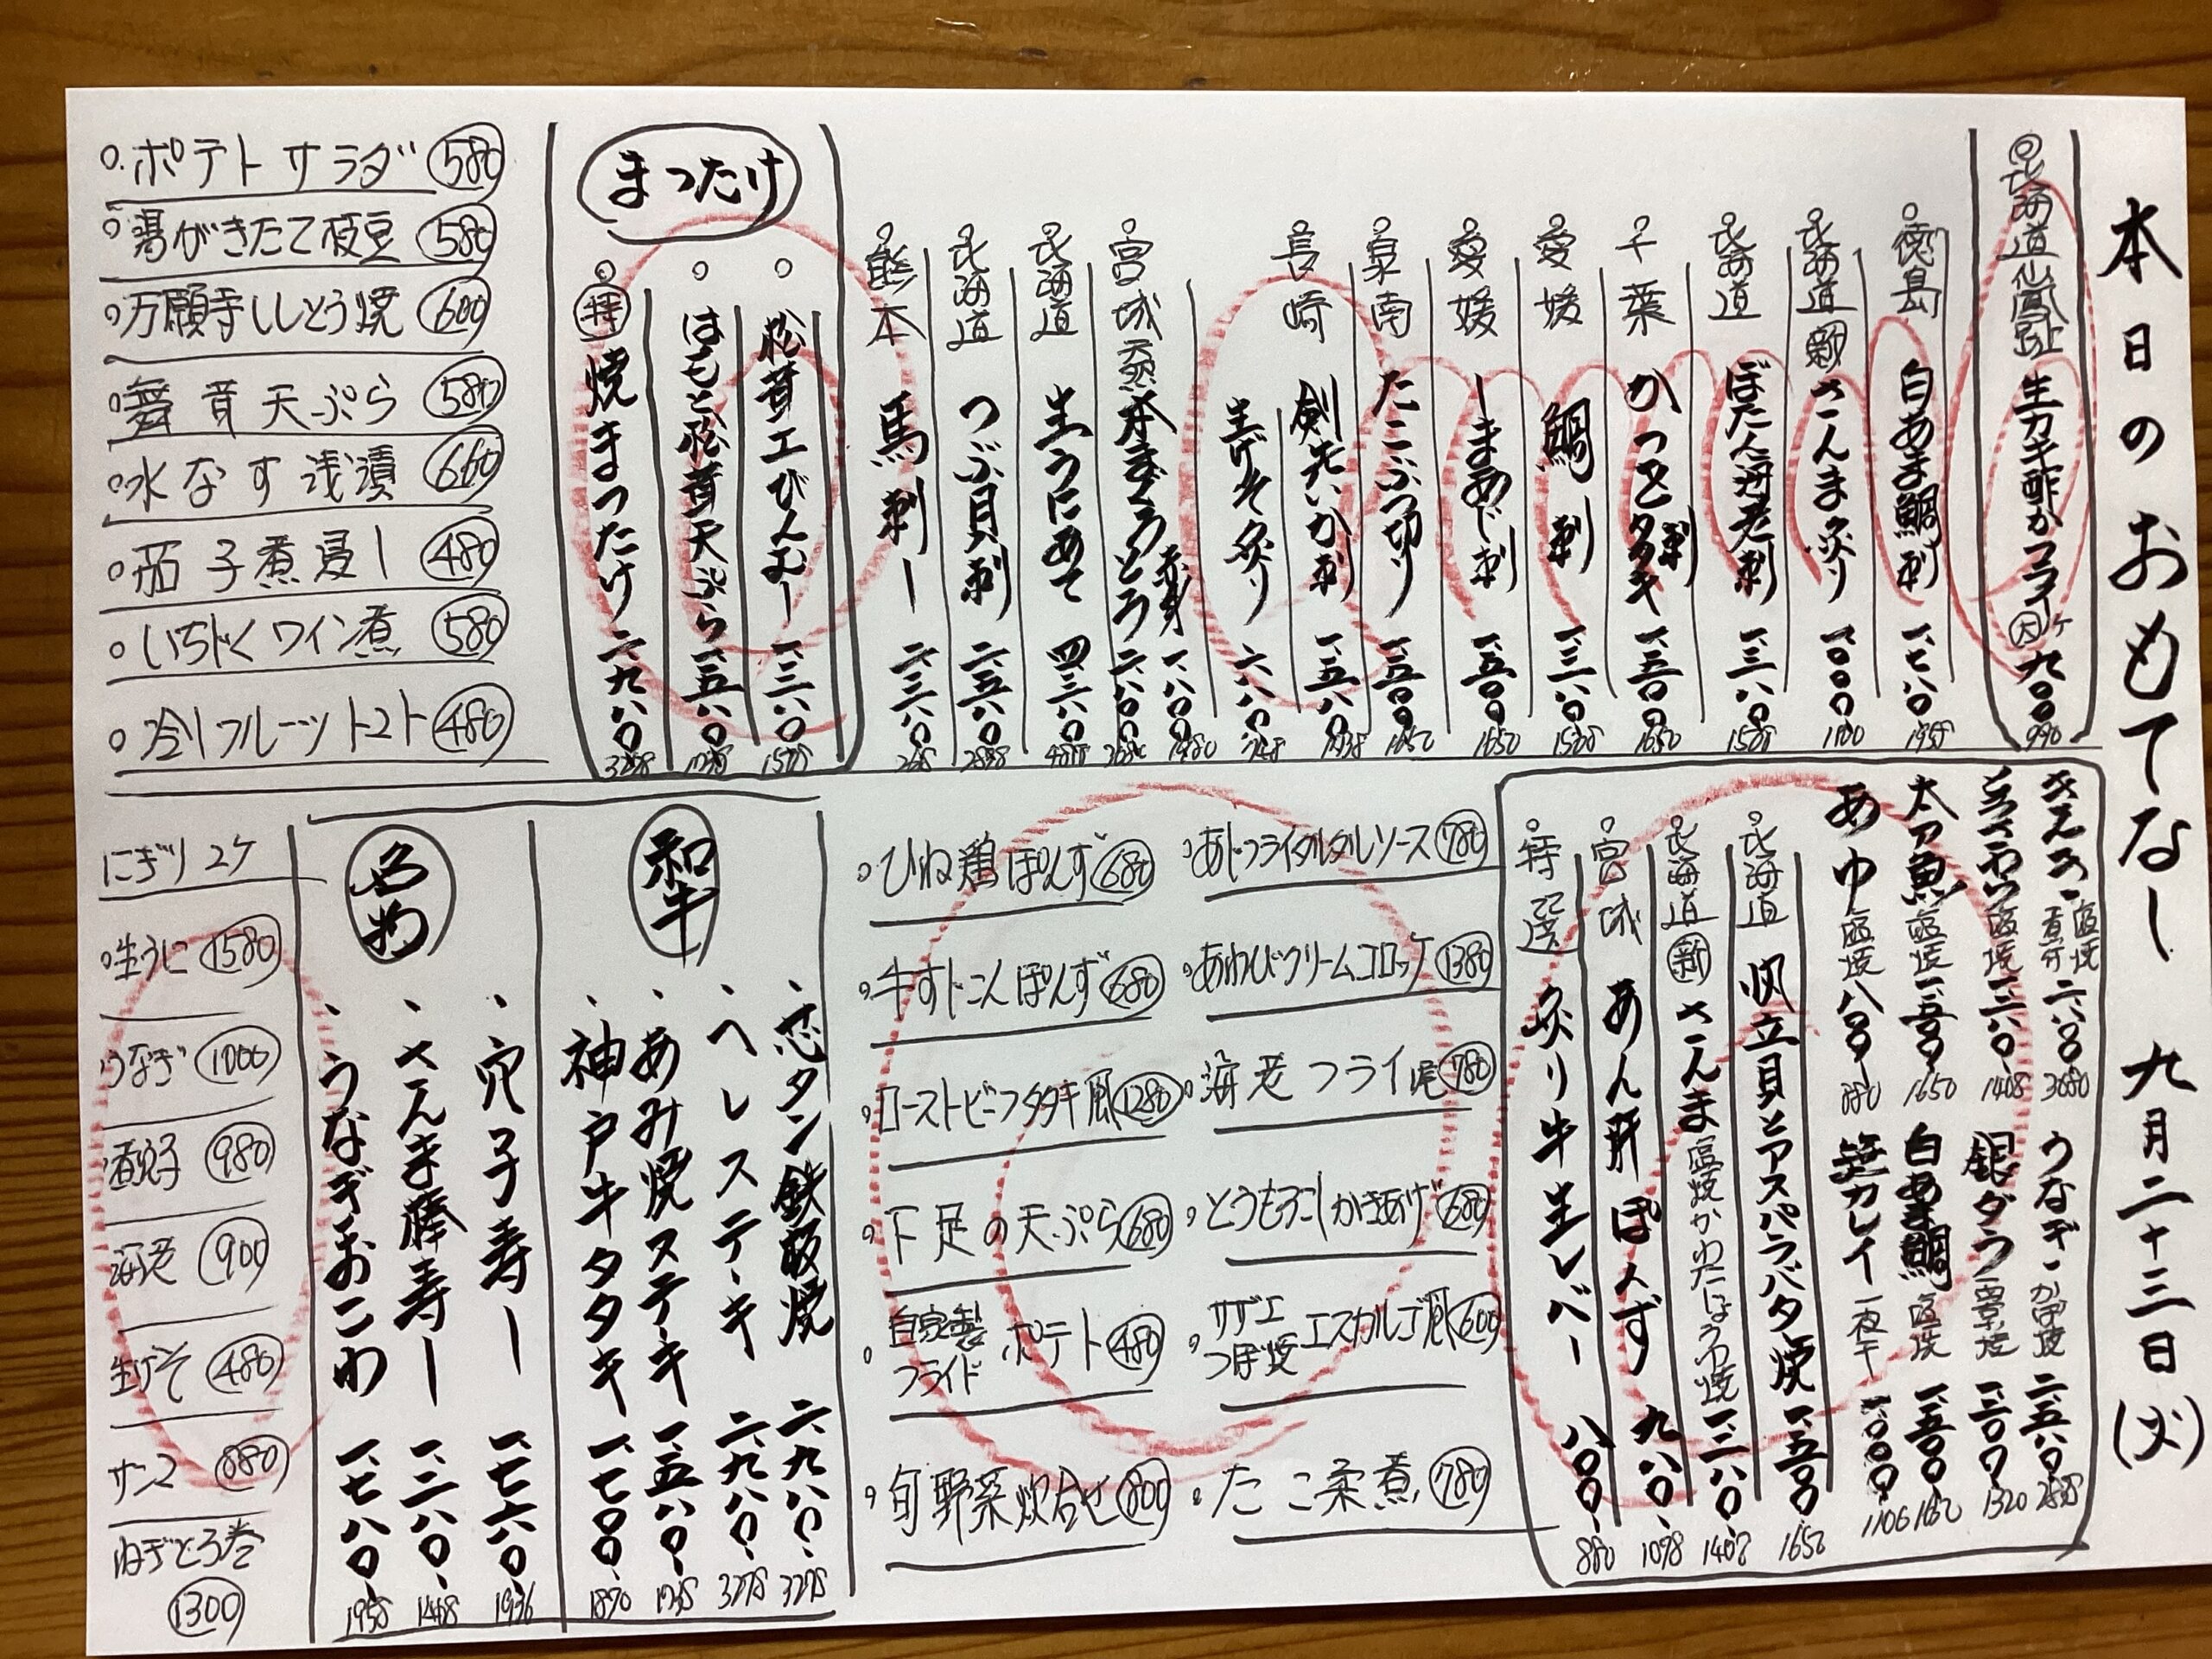 本日のおもてなし 九月二十三日(火)
◎北海道仙鳳趾 生カキ酢かフライ 大ケ 九〇〇 990
徳島 白あま鯛刺 一、七八〇 1958
北海道 新 さんま炙り 一、〇〇〇 1100
北海道 ぼたん海老刺 一、三八〇 1518
千葉 かつを 刺 タタキ 一、五〇〇 1650
愛媛 鯛刺 一、三八〇 1518
愛媛 しまあじ刺 一、五〇〇 1650
泉南 たこぶつ切り 一、五〇〇 1650
長崎 剣先いか刺 一、五八〇 1738
生げそ炙り 六八〇 748
宮城 天然 本まぐろ 赤身 一、八〇〇 1980
とろ 二、八〇〇 3080
北海道 生うにあて 四、三八〇 4818
北海道 つぶ貝刺 二、五八〇 2838
熊本 馬刺し 二、三八〇
まつたけ
松茸土びんむし 一、三八〇 1518
はもと松茸天ぷら 一、五八〇 1738
特 焼まつたけ 二、九八〇 3278
ポテトサラダ 580
湯がきたて枝豆 580
万願寺ししとう焼 600
舞茸天ぷら 580
水なす浅漬 660
茄子煮浸し 480
いちぢくワイン煮 580
冷しフルーツトマト 480
きんき 塩焼 煮付 二、八〇〇 3080
とろさわら 塩焼 一、二八〇 1408
太刀魚 塩焼 一、五〇〇 1650
あゆ 塩焼 八〇〇 880
うなぎ かば焼 二、五八〇 2838
銀ダラ 西京焼 一、二〇〇 1320
白あま鯛 塩焼 一、五〇〇 1650
笹カレイ 一夜干 一、〇〇〇 1100
北海道 帆立貝とアスパラバタ焼 一、五〇〇 1650
北海道 新 さんま 塩焼かわたしょうゆ焼 一、二八〇 1408
宮城 あん肝ぽんず 九八〇 1078
特選 炙り牛生レバー 八〇〇 880
あじフライタルタルソース 780
あわびクリームコロッケ 1380
海老フライ 一尾 780
とうもろこしかきあげ 680
サザエつぼ焼 エスカルゴ風 600
たこ柔煮 780
ひね鶏ぽんず 680
牛すじこんぽんず 680
ローストビーフタタキ風 1280
下足の天ぷら 680
自家製フライドポテト 480
旬野菜炊合せ 800
和牛
芯タン鉄板焼 二、九八〇 3278
ヘレステーキ 二、九八〇 3278
あみ焼ステーキ 一、五八〇 1738
神戸牛タタキ 一、七〇〇 1870
名物
穴子寿し 一、七六〇 1936
さんま棒寿し 一、二八〇 1408
うなぎおこわ 一、七八〇 1958
にぎり 2ケ
生うに 1580
うなぎ 1000
煮穴子 980
海老 900
生げそ 480
サンマ 880
ねぎとろ巻 1300